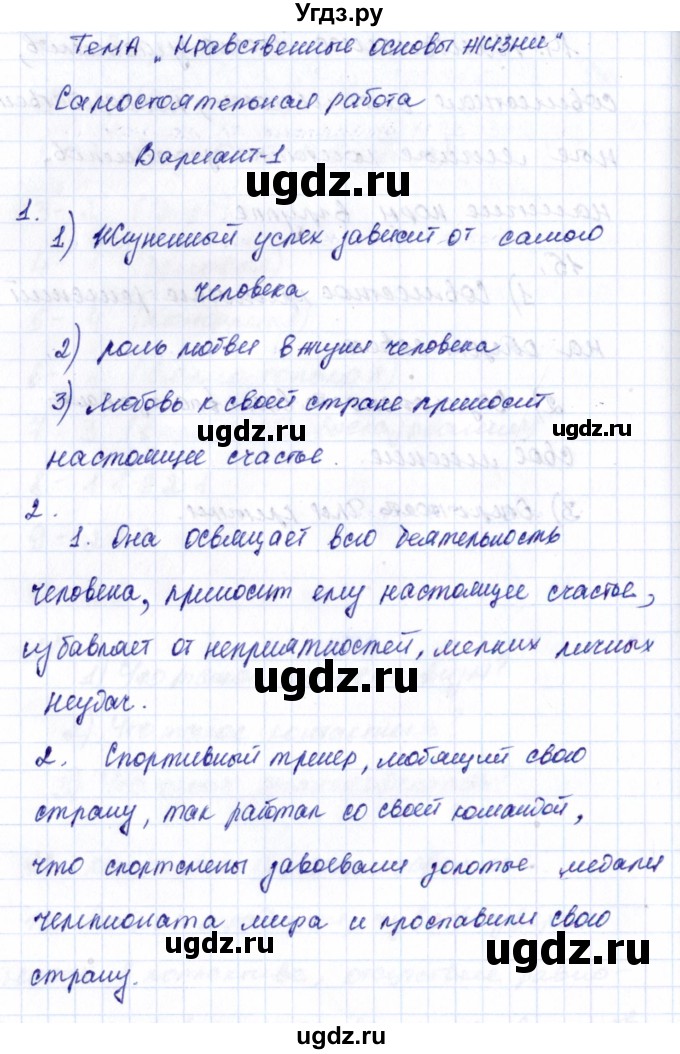 Угдз.ру
Тема „ Нравственные основы жизни"
Самостоятельная работа
Вариант-1
ugdz.ru
1.
1) Жизненный успех зависит от самого
ugdz.ru
человека
2) роль любви в жизни человека
3) любовь к своей стране приносит
ugdz.ru ugdz.ru
настоящее счастье.
2.
1. Она освящает всю деятельность
ugdz.ru
человека, приносит ему настоящее счастье,
избавляет от неприятностей, мелких личных
ugdz.ru
неудач.
2. Спортивный тренер, любящий свою
ugdz.ru
страну, так работал со своей командой,
что спортсмены завоевали золотые медали
ugdz.ru
чемпионата мира и прославили свою
ugdz.ru ugdz.ru
страну.
ugdz.ru